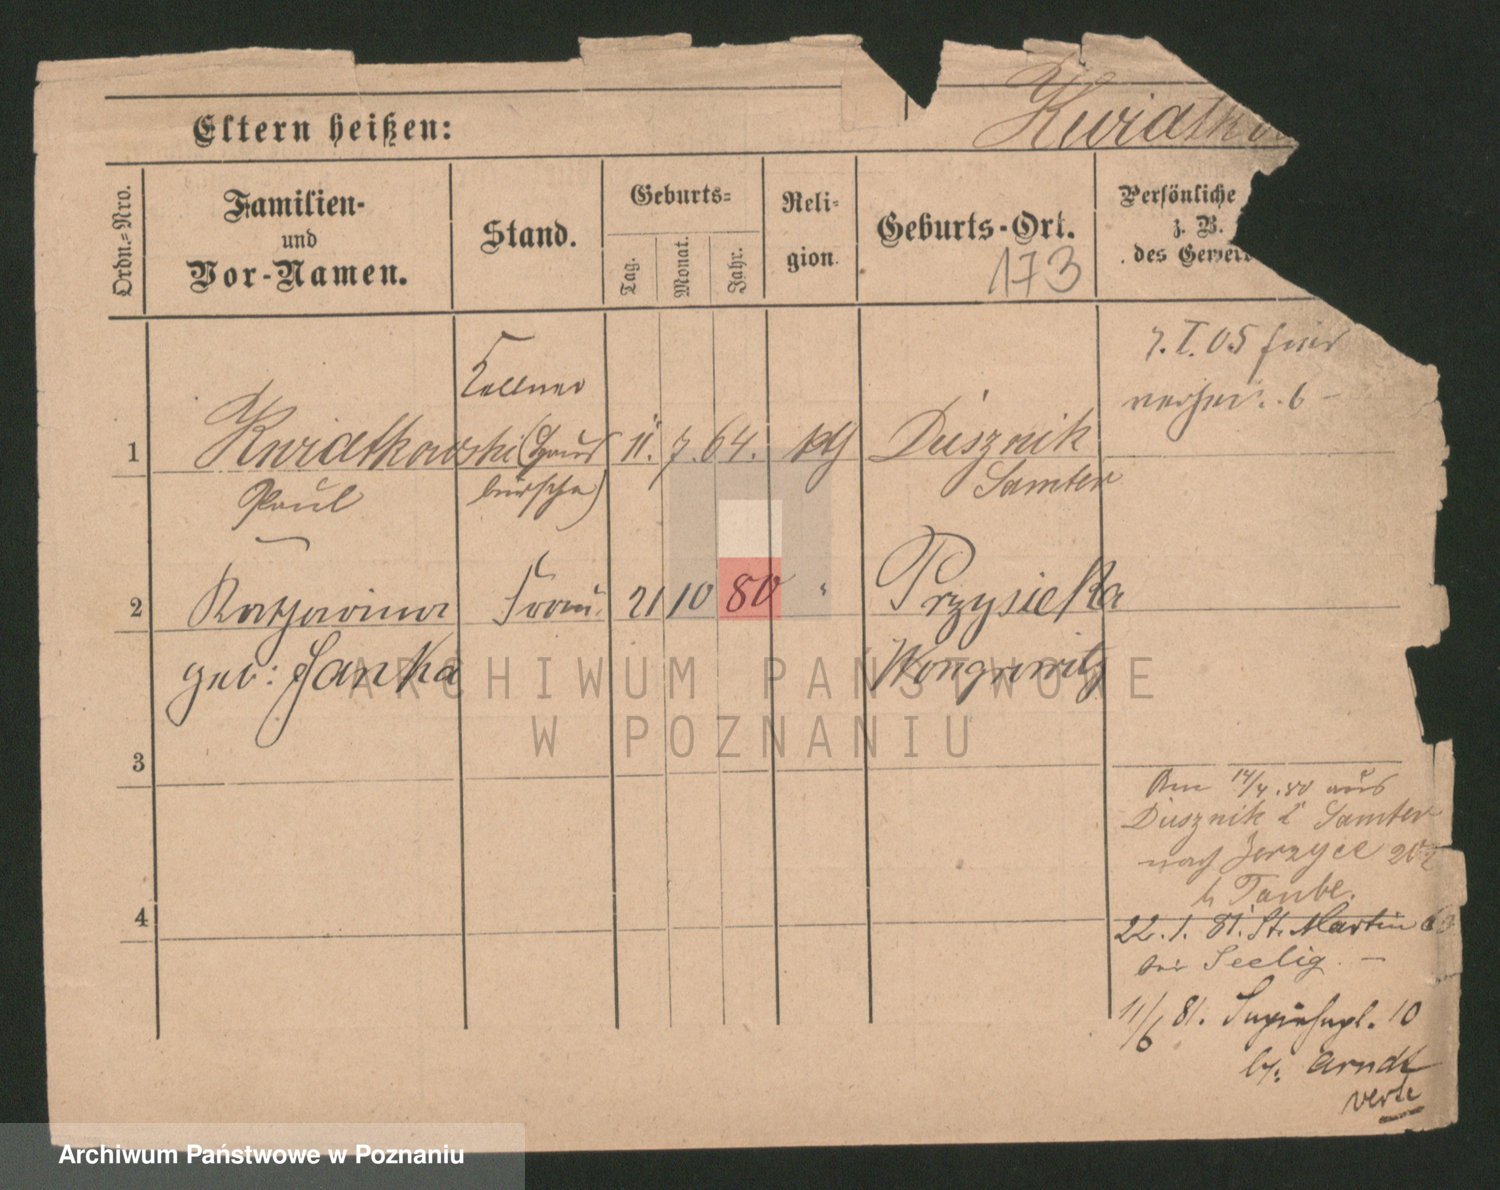 Eltern heißen:
Kwiatkow
Ordn.-Nro.
Familien-
und
Vor-Namen.
Stand.
Geburts-
Tag.
Monat.
Jahr.
Reli-
gion.
Geburts-Ort.
173
Persönliche
z. B.
des Gewer
7. I. 05 hier
verhei. 6 -
Kellner
1 Kwiatkowski (Haus 11. 7. 64. kth Dusznik
Paul bursche) Samter
2 Katharina Frau 21 10 80 " Przysieka
geb: Janka Wongrowitz
3
Am 14/4.80 aus
Dusznik Samter
nach Jerzyce
b Taube.
4
22. 1. 81. St. Martin
bei Seelig. -
11/6 81. Sapiehapl. 10
b/: Arndt
verte
ARCHIWUM PAŃSTWOWE
W POZNANIU
Archiwum Państwowe w Poznaniu